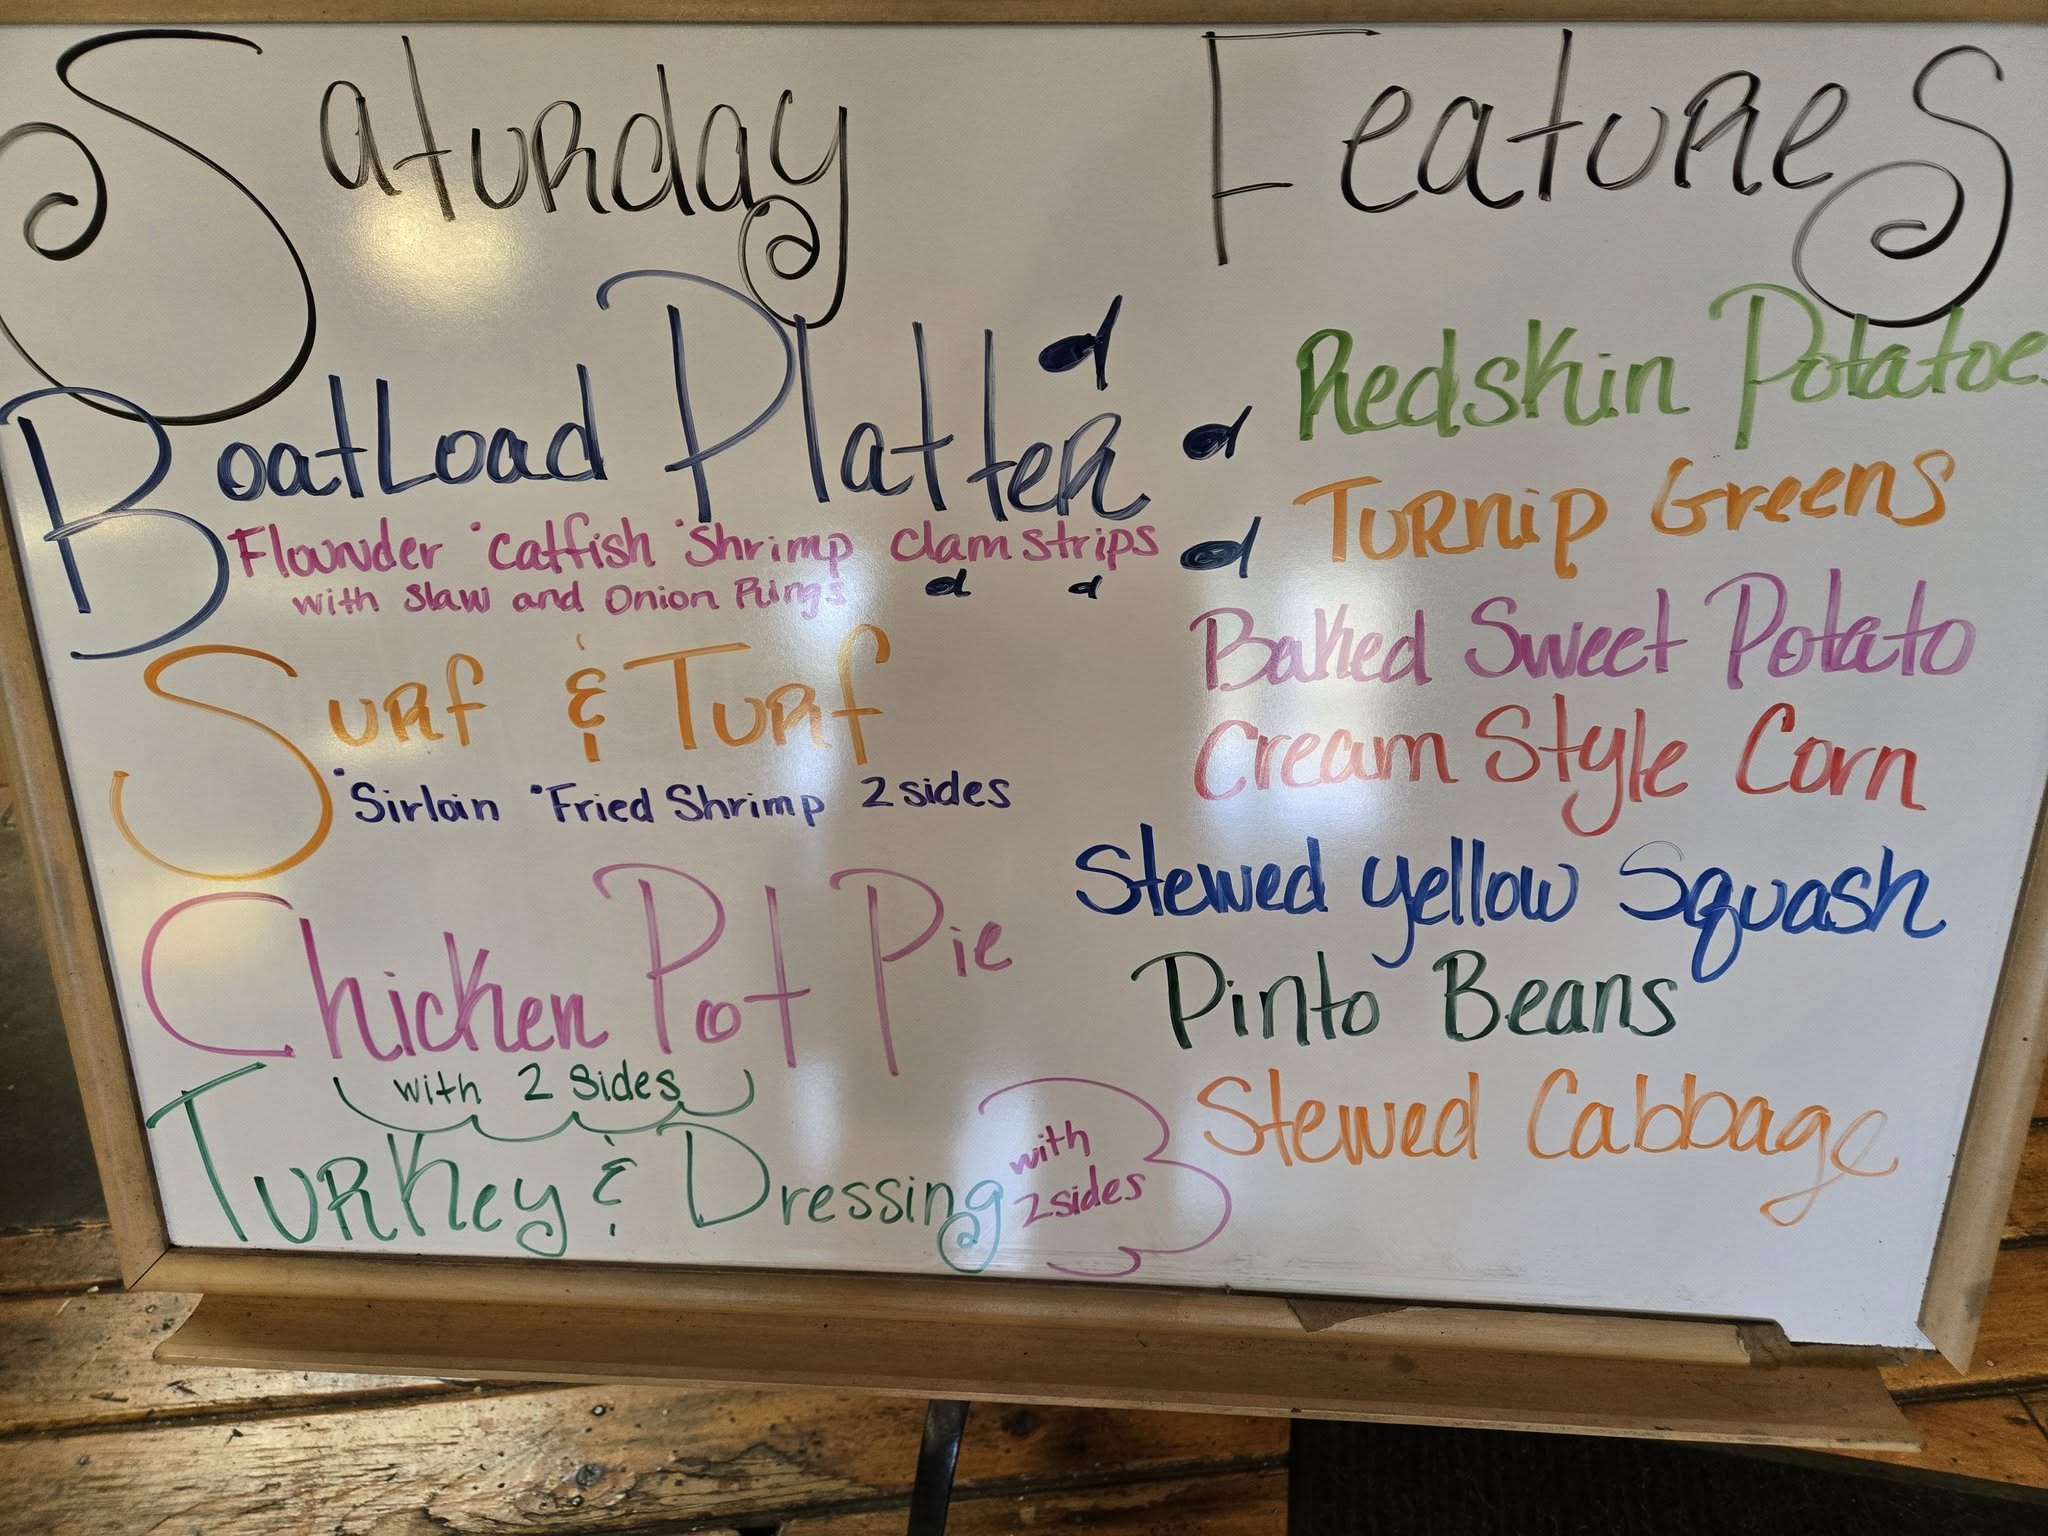 Saturday Features
BoatLoad Platter
Flounder *Catfish *Shrimp Clam Strips
with Slaw and Onion Rings
Surf & Turf
*Sirloin *Fried Shrimp 2 sides
Chicken Pot Pie
with 2 sides
Turkey & Dressing with 2 sides
Redskin Potatoes
Turnip Greens
Baked Sweet Potato
Cream Style Corn
Stewed Yellow Squash
Pinto Beans
Stewed Cabbage